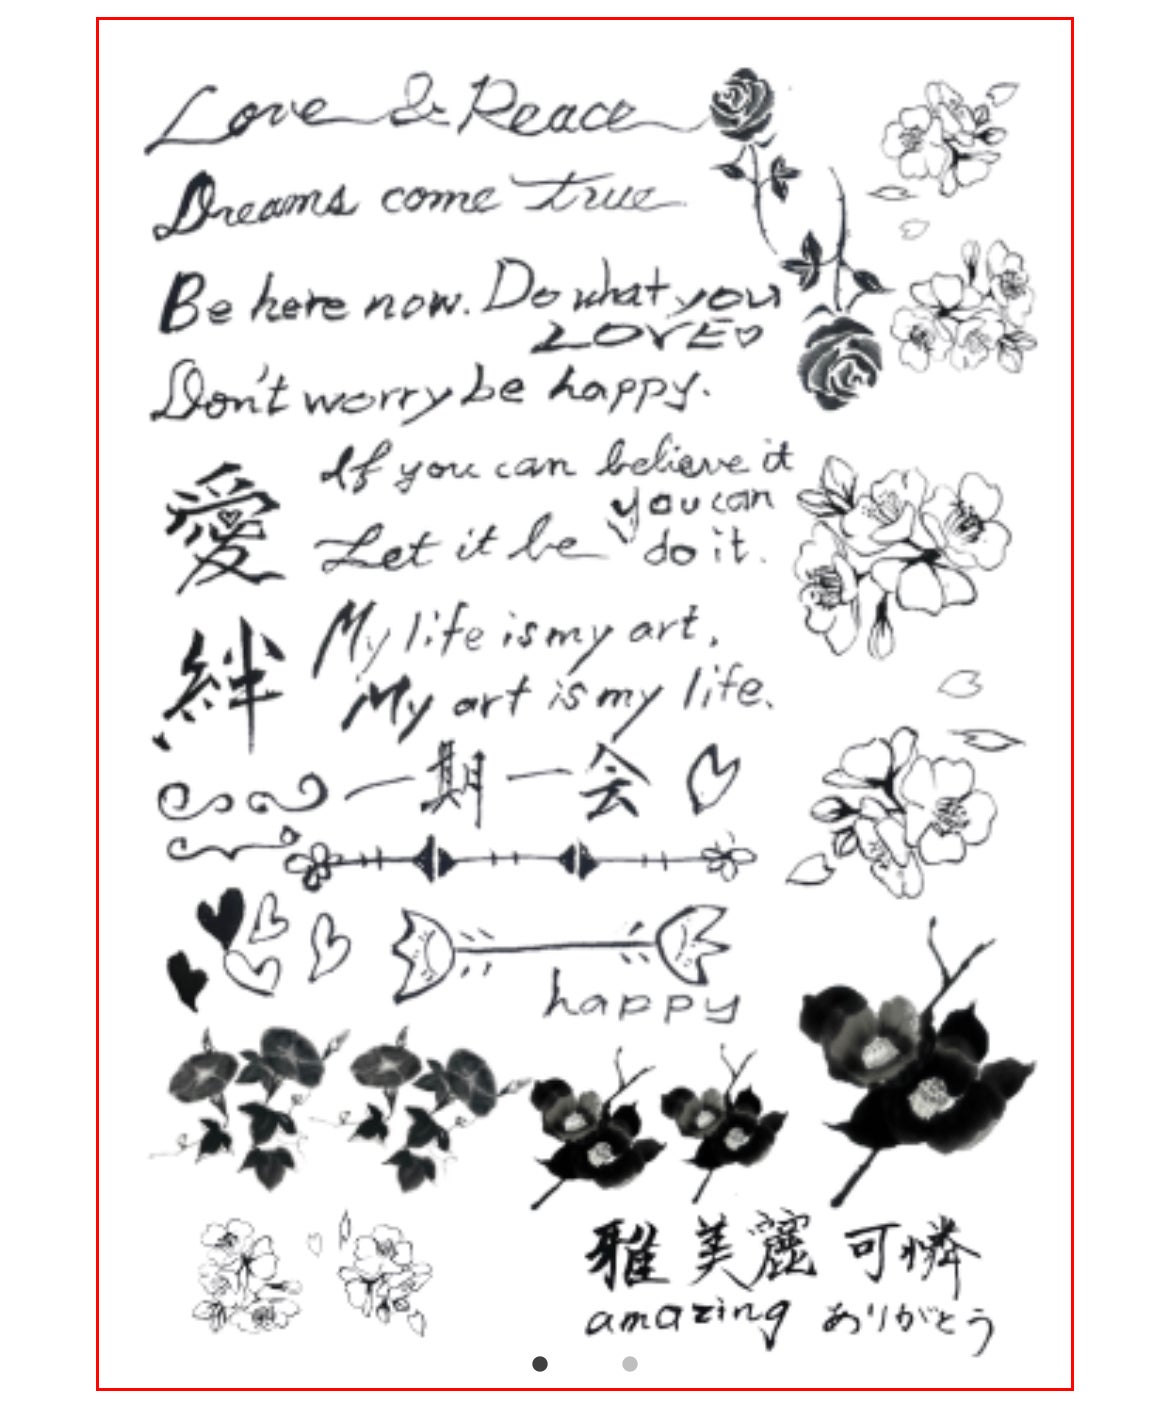 Love & Peace
Dreams come true
Be here now. Do what you
LOVE
Don't worry be happy.
If you can believe it
you can
do it.
愛
Let it be
My life is my art.
絆
My art is my life.
一期一会
happy
雅 美麗 可憐
amazing ありがとう